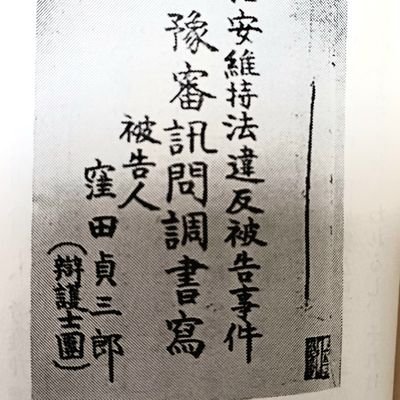 治安維持法違反被告事件
豫審訊問調書寫
被告人
窪田貞三郎
(辯護士團)